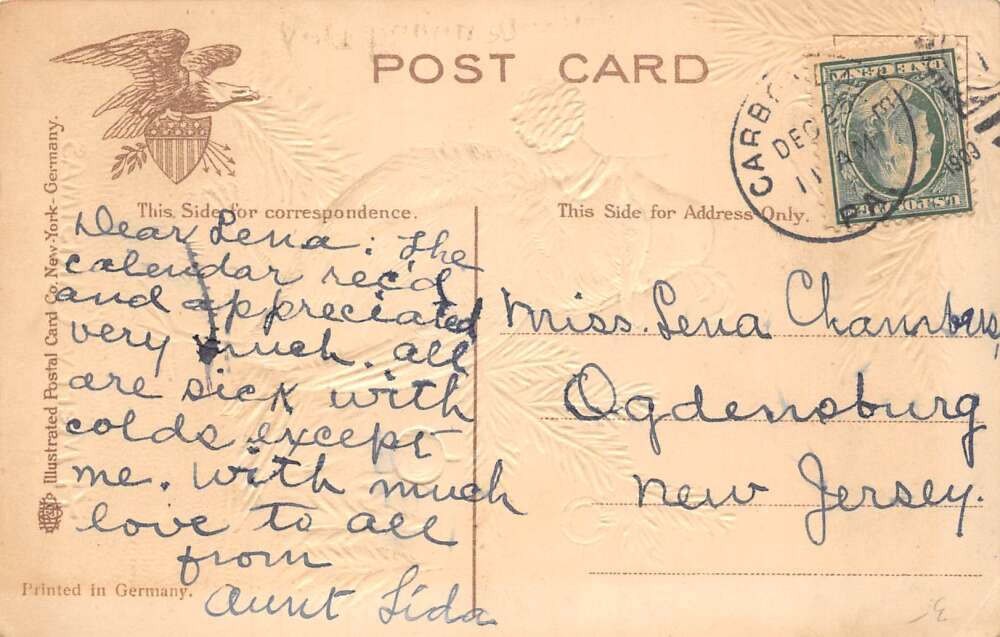 POST CARD
This Side for correspondence.
This Side for Address Only.
Illustrated Postal Card Co. New-York- Germany.
Printed in Germany.
CARBO
DEC
11 AM
PA.
1909
Dear Lena: The
calendar rec'd
and appreciated
very much. all
are sick with
colds except
me. with much
love to all
from
Aunt Lida
Miss. Lena Chambers,
Ogdensburg
New Jersey.